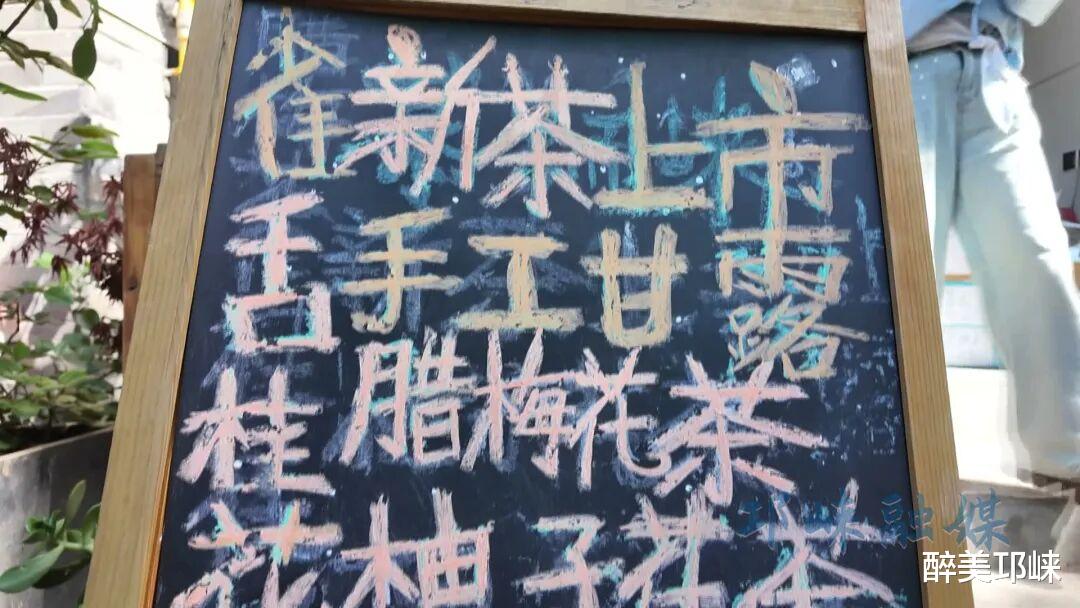 新茶上市
雀舌
手工甘露
桂花
腊梅花茶
柚子花茶
邛崃融媒
醉美邛崃